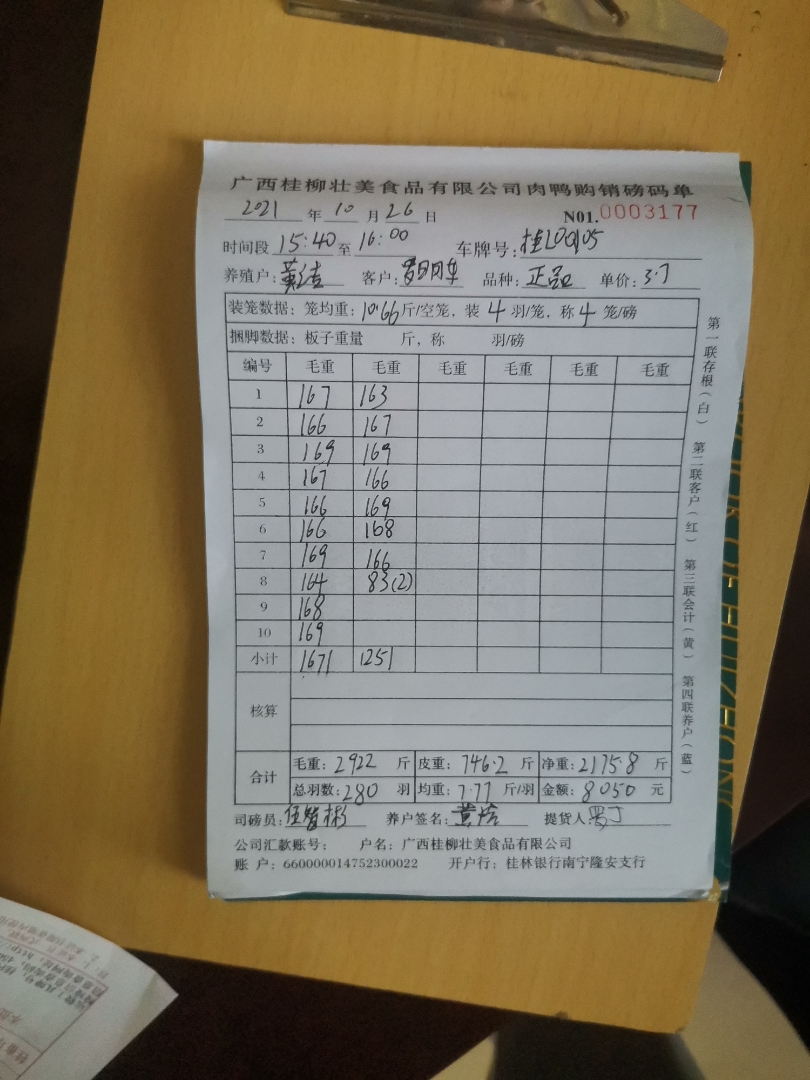 广西桂柳壮美食品有限公司肉鸭购销磅码单
2021 年 10 月 26 日 N01.0003177
时间段 15:40 至 16:00 车牌号:
养殖户: 客户: 品种: 正品 单价: 3.7
装笼数据: 笼均重: 10.66 斤/空笼, 装 4 羽/笼, 称 4 笼/磅
捆脚数据: 板子重量 斤, 称 羽/磅
编号 毛重 毛重 毛重 毛重 毛重 毛重
1 167 163
2 166 167
3 169 169
4 167 166
5 166 169
6 166 168
7 169 166
8 164 83(2)
9 168
10 169
小计 1671 1251
核算
合计 毛重: 2922 斤 皮重: 746.2 斤 净重: 2175.8 斤
总羽数: 280 羽 均重: 7.77 斤/羽 金额: 8050 元
司磅员: 养户签名: 提货人
公司汇款账号: 户名: 广西桂柳壮美食品有限公司
账 户: 660000014752300022 开户行: 桂林银行南宁隆安支行
第一联存根(白) 第二联客户(红) 第三联会计(黄) 第四联养户(蓝)